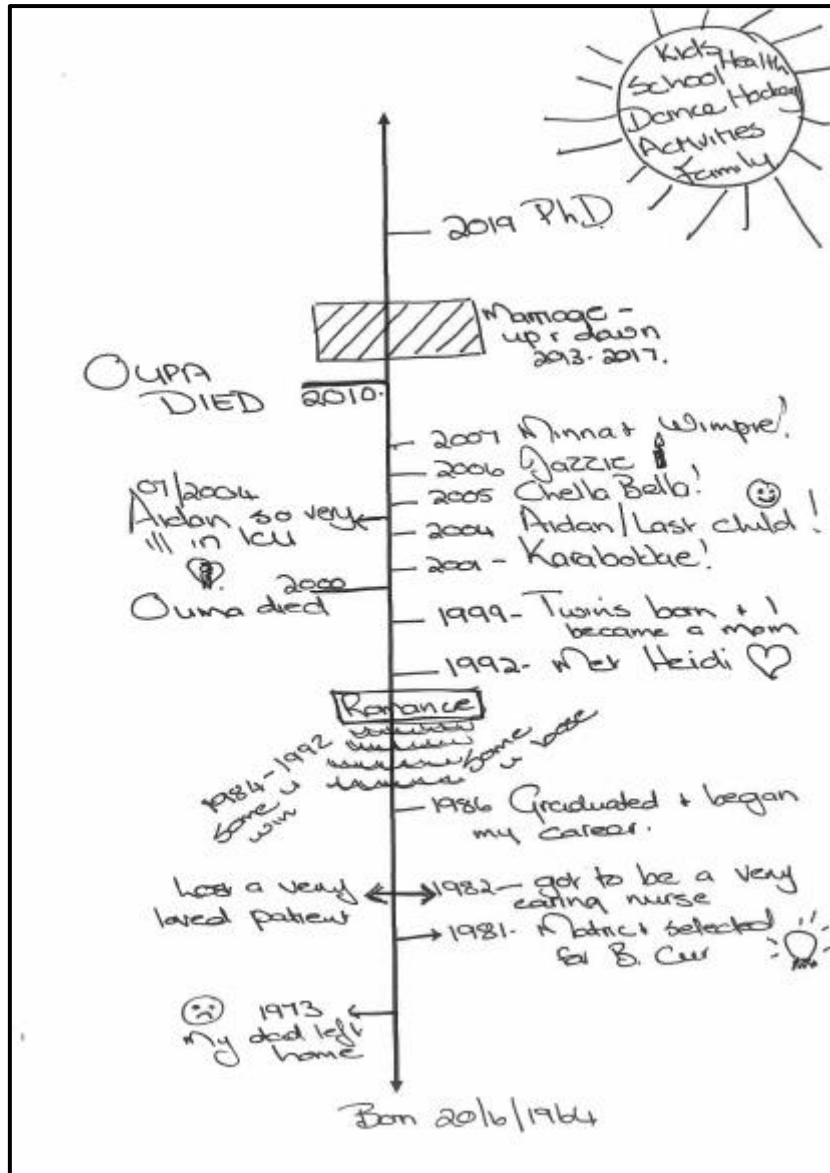 Kids Health
School
Dance Hockey
Activities
Family
2019 PhD
Marriage -
up + down
2013-2017.
OUPA
DIED 2010.
2007 Minna + Wimpie!
2006 Jazzie
2005 Chella Bella!
07/2004
Aidan so very
ill in ICU
2004 Aidan/Last child!
2001 - Karabokkie!
2000
Ouma died
1999 - Twins born + I
became a mom
1992 - Met Heidi
Romance
1984-1992
Some u
win
Some
u loose
1986 Graduated + began
my career.
Lost a very
loved patient
1982 - got to be a very
caring nurse
1981 - Matric + selected
for B. Cur
1973
My dad left
home
Born 20/6/1964